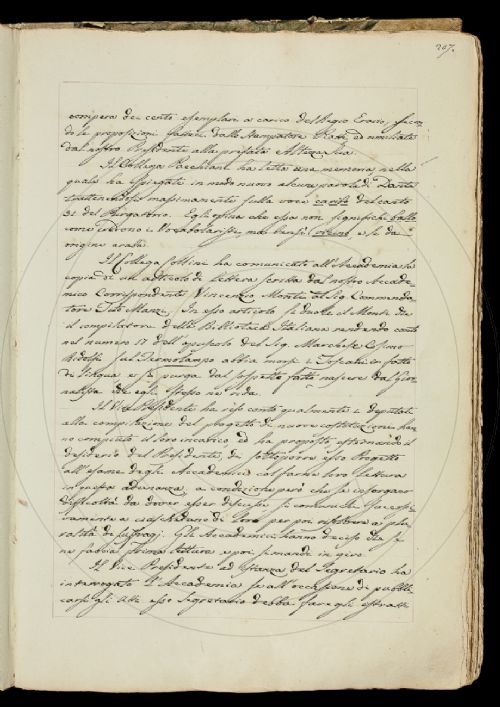 207.
compera dei cento esemplari a carico del Regio Erario, secon
do le proposizioni fattene dallo stampatore Piatti ed umiliate
dal nostro Presidente alla prefata Altezza
Il Collega Pacchiani ha letta una memoria, nella
quale ha spiegate in modo nuovo alcune parole di Dante
trattenendosi massimamente sulla voce carità del canto
31 del Purgatorio. Egli opina che essa non significhi ballo
come credono i Vocabolaristi, ma bensì e le dà
origine
Il Collega Collini ha comunicato all'Accademia la
copia di un articolo di lettera scritta dal nostro Accade
mico Corrispondente Vincenzio Monti al Sig. Commenda
tore Tito Manzi. In esso articolo si duole il Monti che
il compilatore della Biblioteca Italiana rendendo conto
nel numero 17 dell'opuscolo del Sig. Marchese Cosimo
Ridolfi sul abbia morsi i Toscani in fatto
di lingua e si purga dal sospetto fatto nascere dal Gior
nalista che egli stesso ne rida.
Il Vice Presidente ha reso conto qualmente i deputati
alla compilazione del progetto di nuove costituzioni han
no compiuto il loro incarico ed ha proposto, esternando il
desiderio del Presidente, di sottoporre esso Progetto
all'esame degli Accademici col farne loro lettura
in questa adunanza, a condizione però che se insorgano
difficoltà da dover esser discusse si comunichi successi
vamente a ciascheduno di loro per poi risolvere a plu
ralità di suffragi. Gli Accademici hanno deciso che se
ne faccia prima lettura e poi si mandi in giro.
Il Vice Presidente ad istanza del Segretario ha
interrogato l'Accademia se all'occasione di pubbli
carsi gli Atti esso Segretario debba fare gli estratti